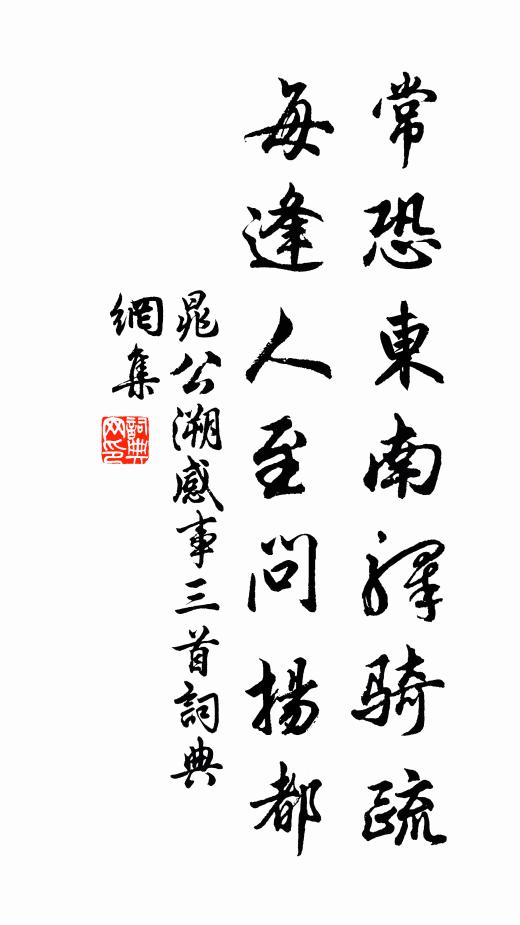 常恐東南驛騎疏
每逢人至問揚都
晁公溯感事三首詞典
網集
詞典
网印